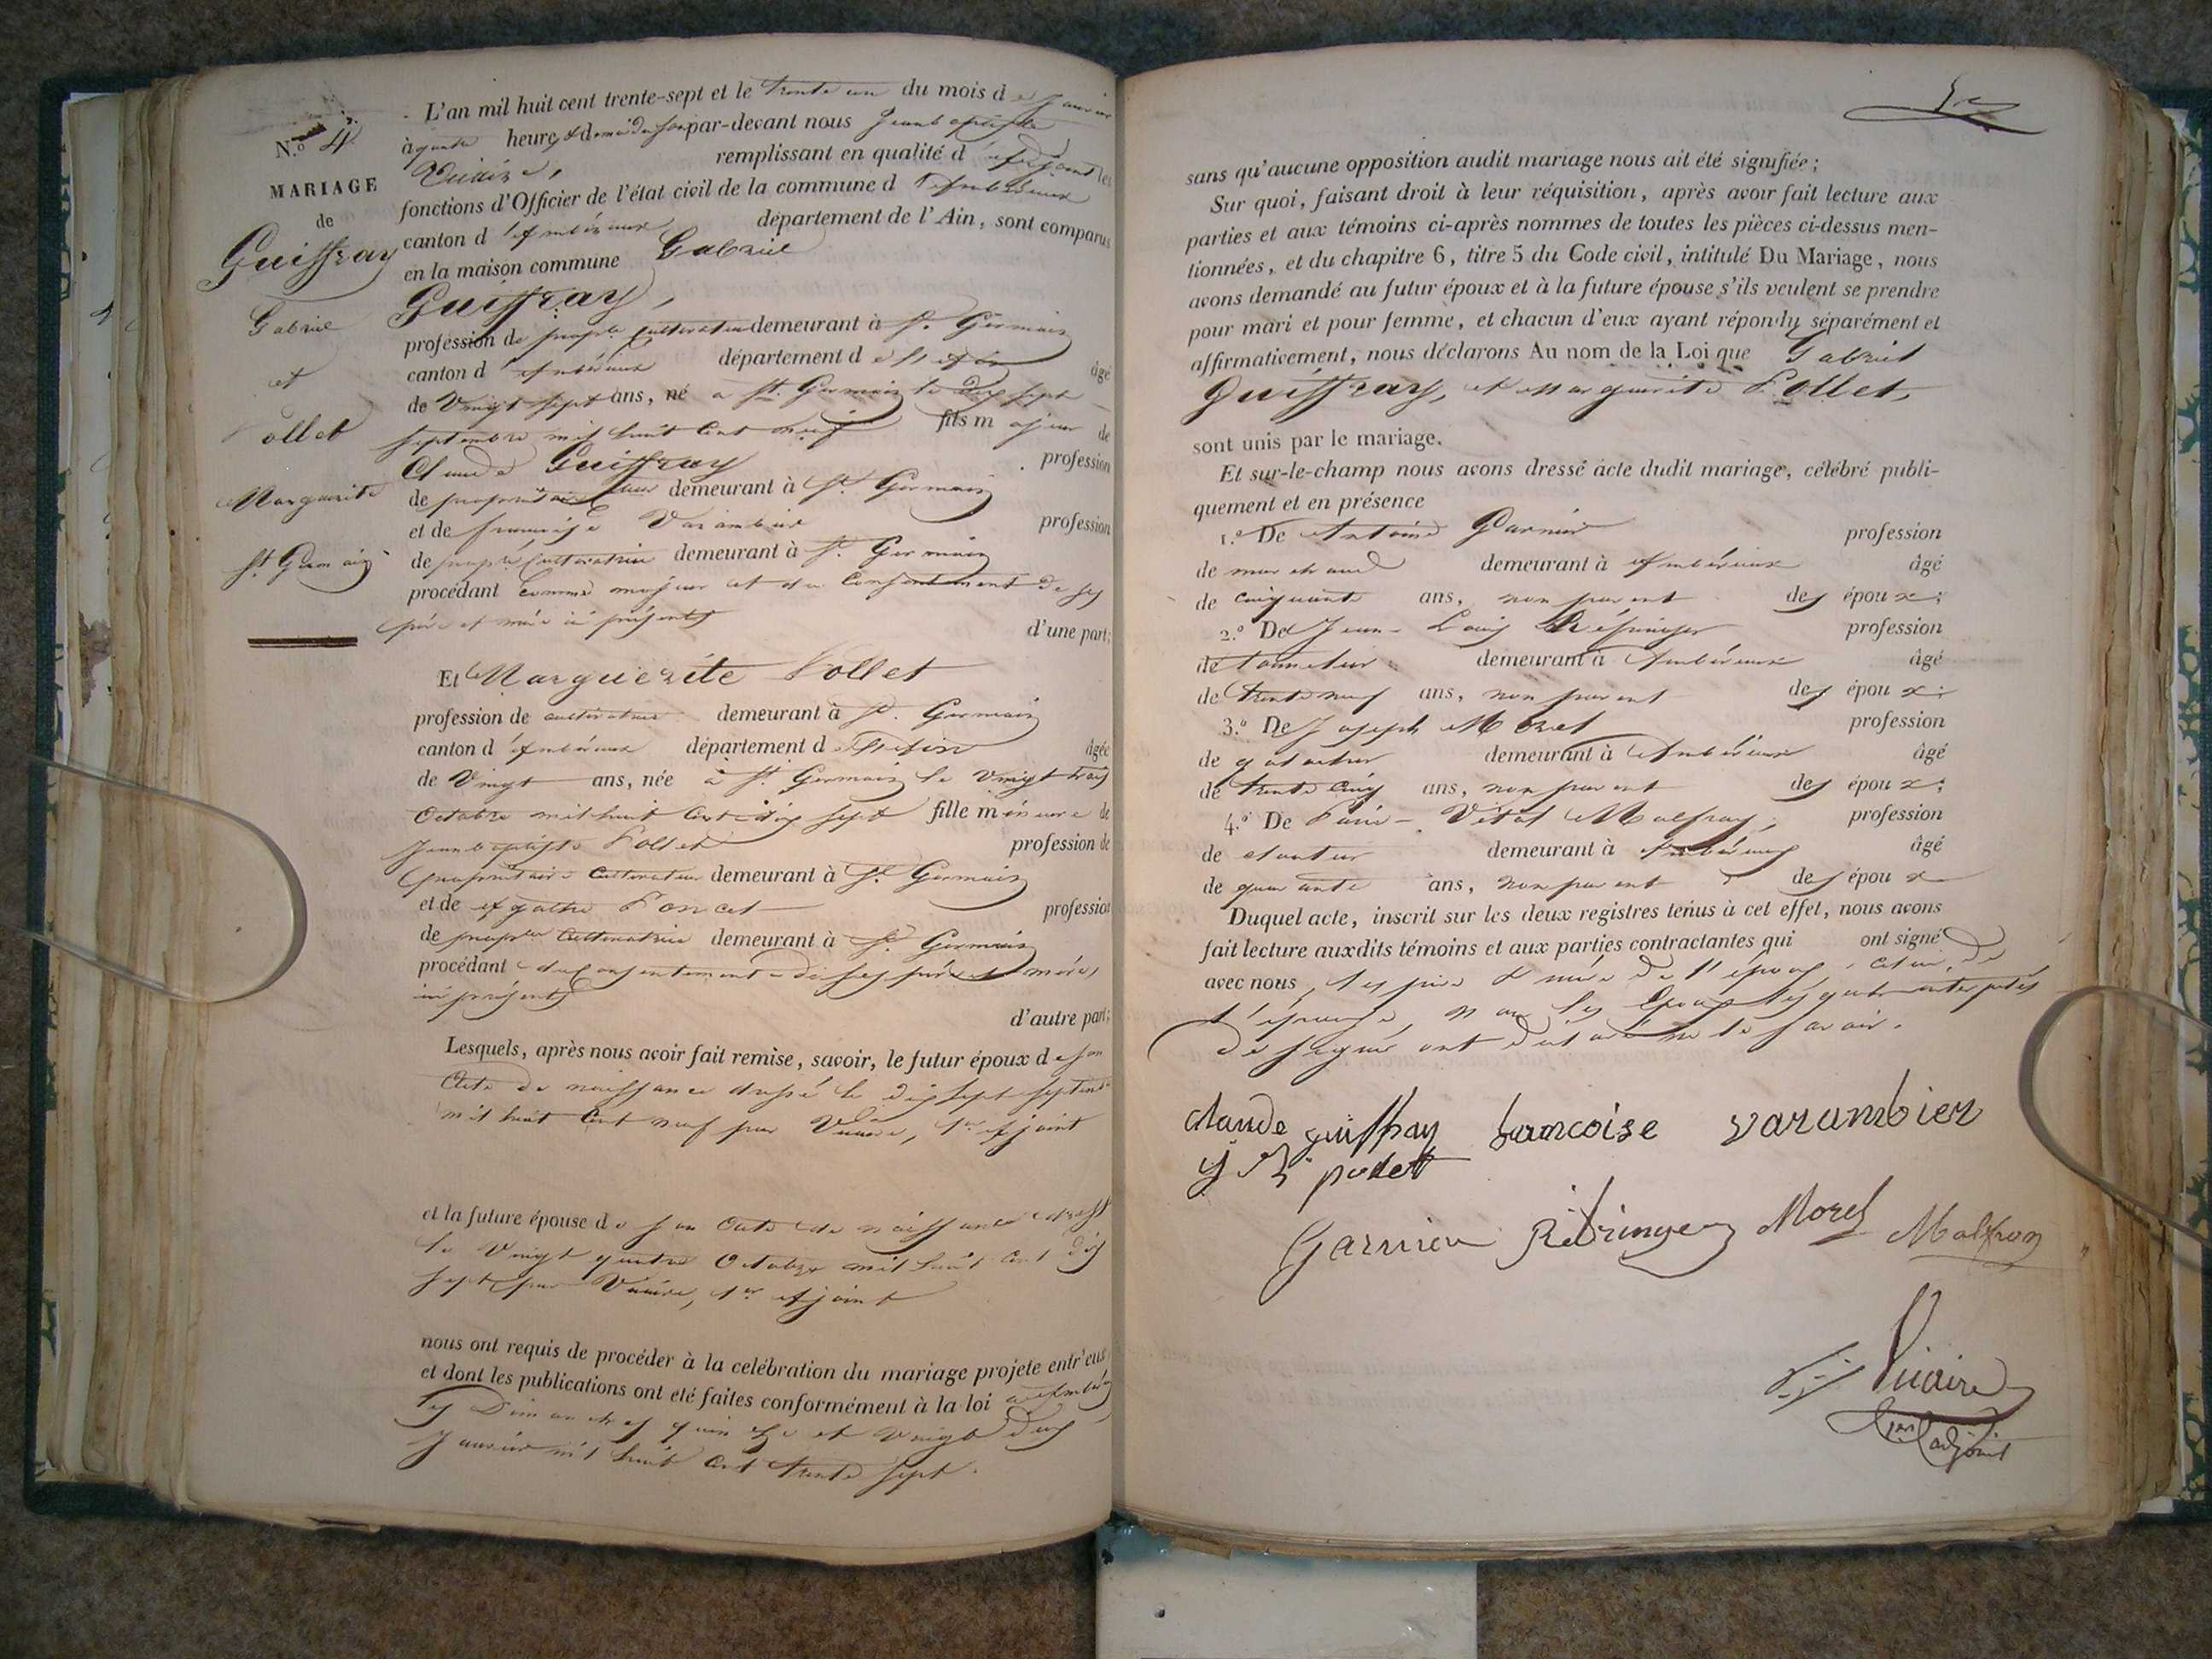 N.o 4
MARIAGE
de
Guiffray
Gabriel
et
Pollet
Marguerite
St Germain
L'an mil huit cent trente-sept et le trente un du mois de janvier
à quatre heures & demie du soir par-devant nous Jean baptiste
Vuaire, remplissant en qualité d'adjoint les
fonctions d'Officier de l'état civil de la commune d'Ambérieux
canton d'Ambérieux département de l'Ain, sont comparus
en la maison commune Gabriel
Guiffray,
profession de propre cultivateur demeurant à St Germain
canton d'Ambérieux département de l'Ain âgé
de vingt sept ans, né à St. Germain le dix sept
septembre mil huit cent neuf fils majeur de
Claude Guiffray profession
de propriétaire demeurant à St Germain
et de françoise Varambier profession
de propre cultivatrice demeurant à St Germain
procédant comme majeur et du consentement de ses
père et mère ici présents d'une part;
Et Marguerite Pollet
profession de cultivatrice demeurant à St. Germain
canton d'Ambérieux département de l'Ain âgée
de vingt ans, née à St. Germain le vingt trois
Octobre mil huit cent dix sept fille mineure de
Jean baptiste Pollet profession de
propriétaire cultivateur demeurant à St Germain
et de Agathe Poncet profession
de propre cultivatrice demeurant à St Germain
procédant du consentement de ses père et mère,
ici présents
d'autre part;
Lesquels, après nous avoir fait remise, savoir, le futur époux de son
acte de naissance dressé le dix sept septembre
mil huit cent neuf par Vuaire, 1er Adjoint
et la future épouse de son acte de naissance dressé
le vingt quatre Octobre mil huit cent dix
sept par Vuaire, 1er Adjoint
nous ont requis de procéder à la celébration du mariage projeté entr'eux
et dont les publications ont été faites conformément à la loi à Ambérieux
les Dimanches quinze et vingt deux
janvier mil huit cent trente sept.
sans qu'aucune opposition audit mariage nous ait été signifiée;
Sur quoi, faisant droit à leur réquisition, après avoir fait lecture aux
parties et aux témoins ci-après nommés de toutes les pièces ci-dessus men-
tionnées, et du chapitre 6, titre 5 du Code civil, intitulé Du Mariage, nous
avons demandé au futur époux et à la future épouse s'ils veulent se prendre
pour mari et pour femme, et chacun d'eux ayant répondu séparément et
affirmativement, nous déclarons Au nom de la Loi que Gabriel
Guiffray, et Marguerite Pollet,
sont unis par le mariage.
Et sur-le-champ nous avons dressé acte dudit mariage, célébré publi-
quement et en présence
1.o De Antoine Garnier profession
de marchand demeurant à Ambérieux âgé
de cinquante ans, non parent des époux;
2.o De Jean-Louis profession
de demeurant à Ambérieux âgé
de trente neuf ans, non parent des époux;
3.o De Joseph Morel profession
de demeurant à Ambérieux âgé
de trente cinq ans, non parent des époux;
4.o De Vital Malfray, profession
de demeurant à Ambérieux âgé
de quarante ans, non parent des époux
Duquel acte, inscrit sur les deux registres tenus à cet effet, nous avons
fait lecture auxdits témoins et aux parties contractantes qui ont signé
avec nous, les père & mère de l'époux, celui de
l'épouse, non les époux lesquels interpellés
de signer ont déclaré ne le savoir.
claude guiffray francoise varambier
j B pollet
Garnier Morel
Vuaire
1er adjoint